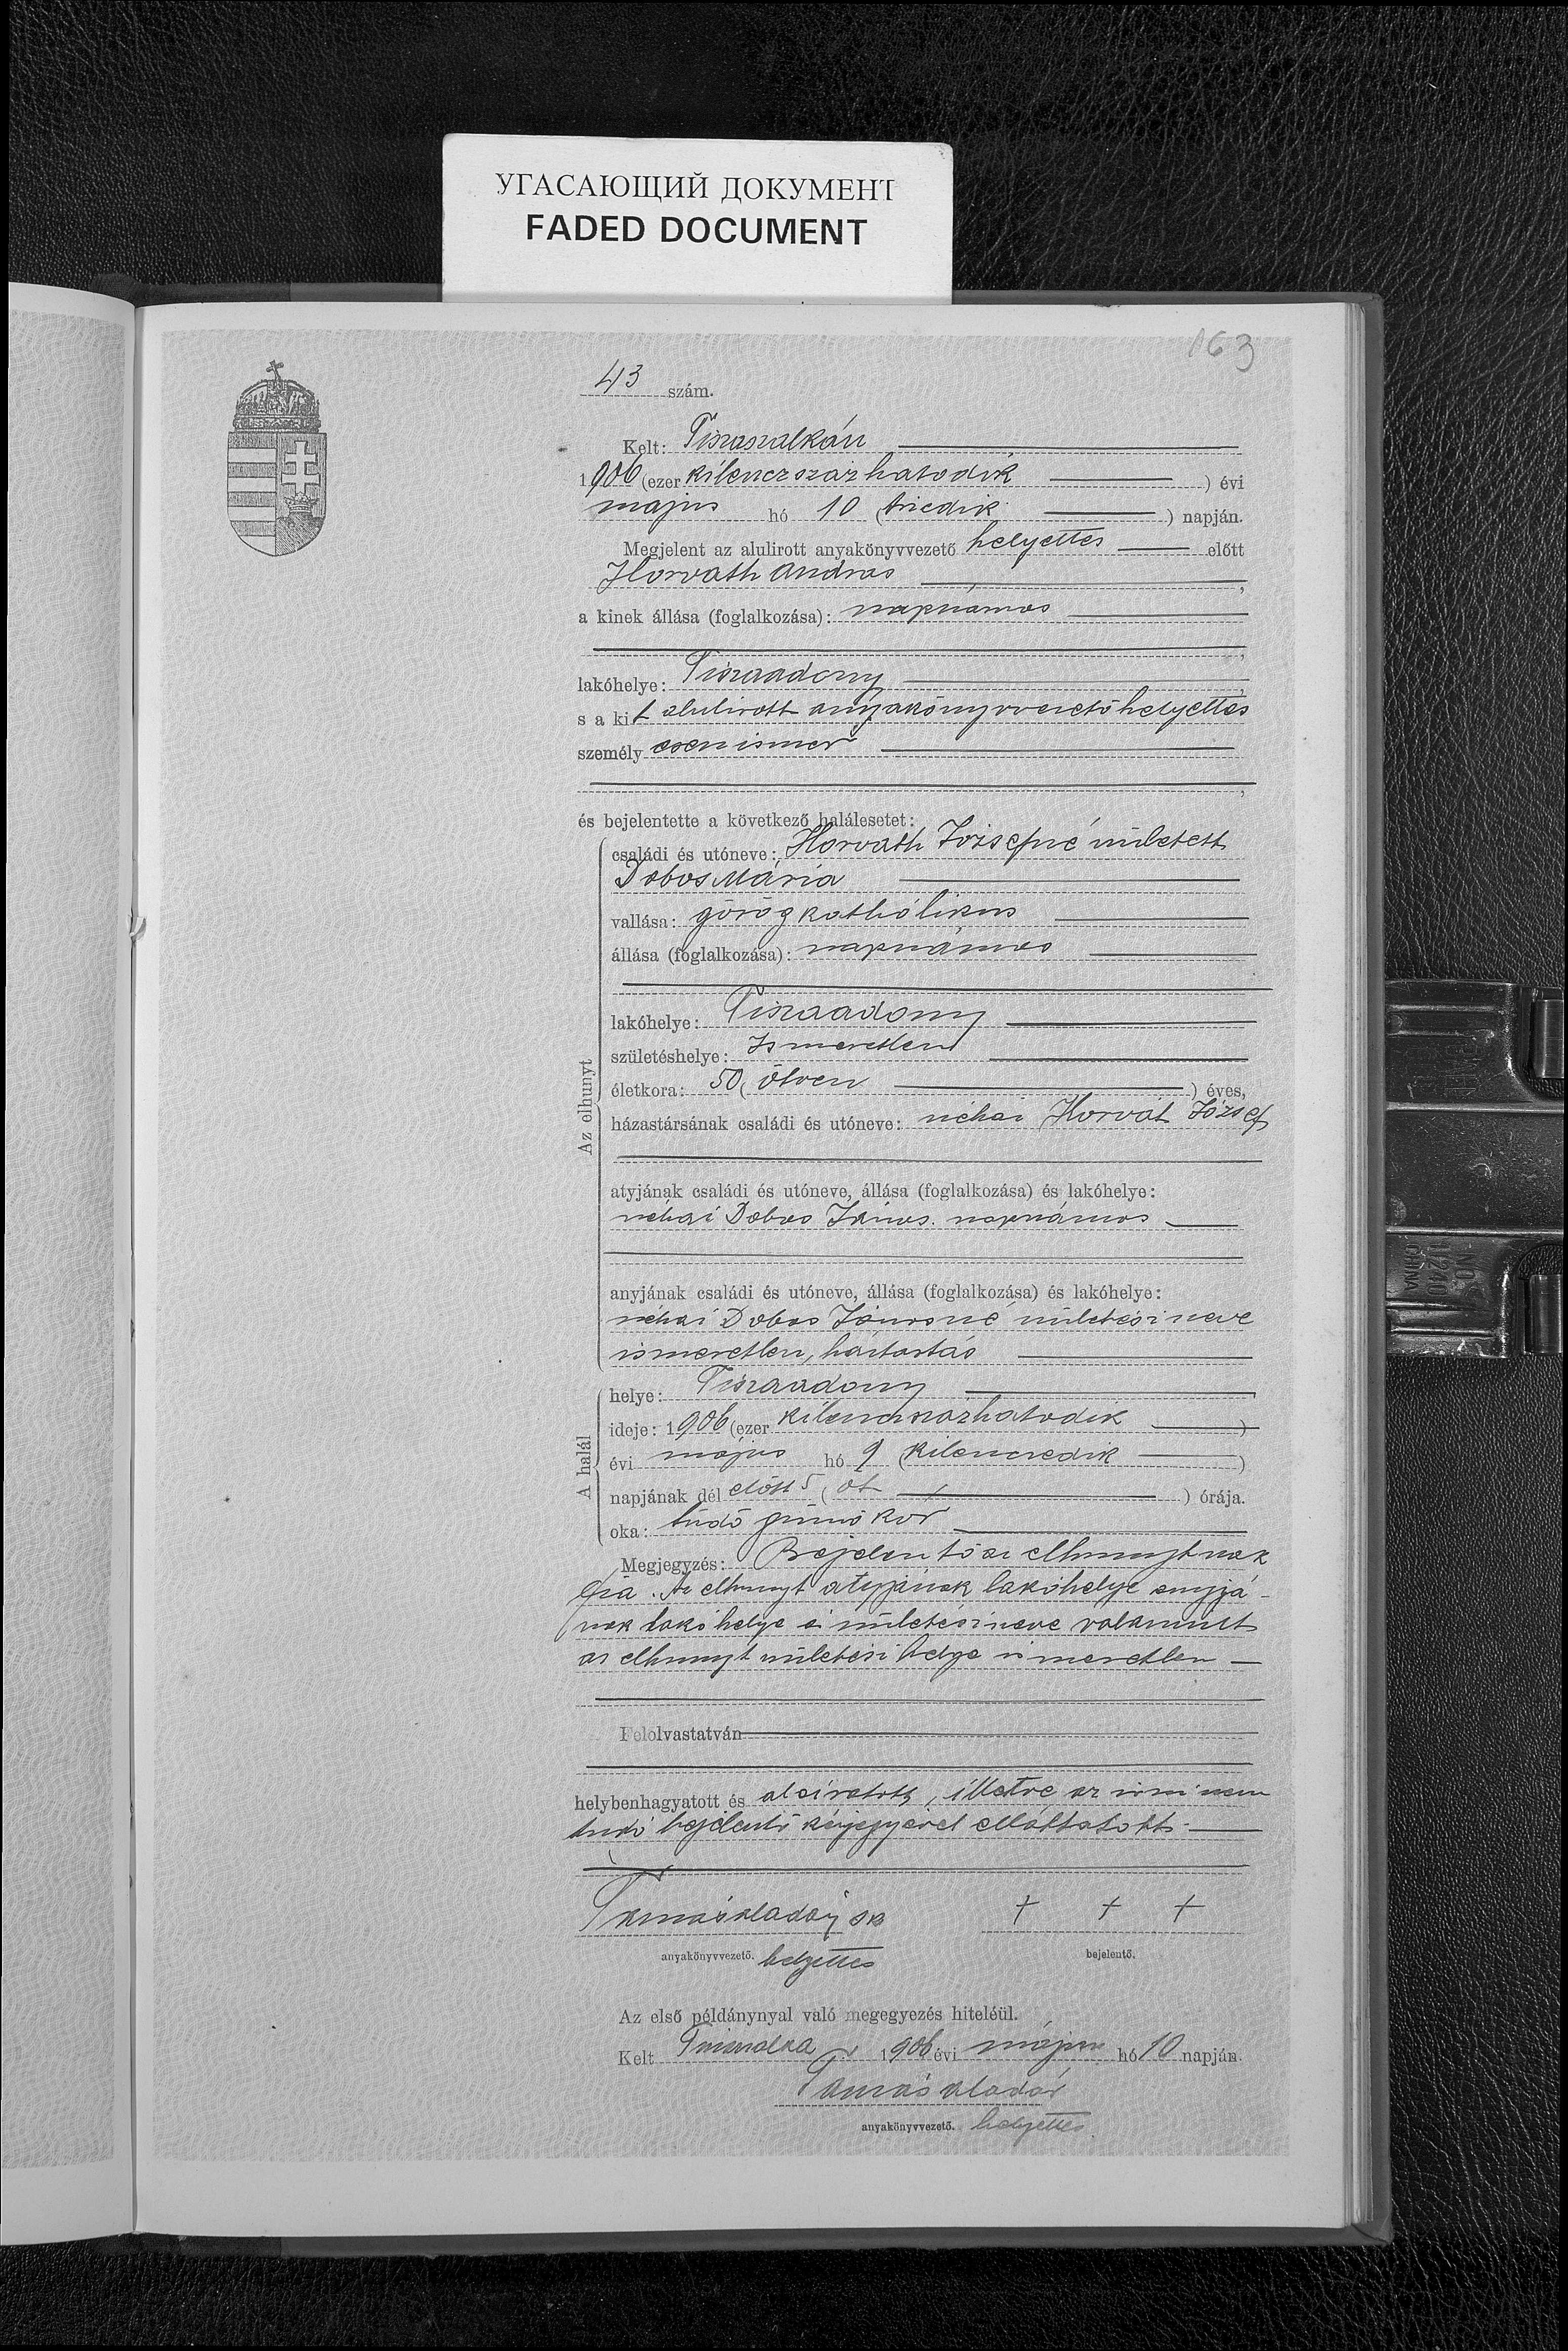 УГАСАЮЩИЙ ДОКУМЕНТ
FADED DOCUMENT
163
43 szám.
Kelt: Tiszaszalkán
1906 (ezer kilenczszázhatodik) évi
május hó 10 (tizedik) napján.
Megjelent az alulirott anyakönyvvezető helyettes előtt
Horváth András,
a kinek állása (foglalkozása): napszámos
lakóhelye: Tiszaadony,
s a kit alulirott anyakönyvvezető helyettes
személyesen ismer
és bejelentette a következő halálesetet:
Az elhunyt
családi és utóneve: Horváth Józsefné született
Dobos Mária
vallása: görög kathólikus
állása (foglalkozása): napszámos
lakóhelye: Tiszaadony
születéshelye: Ismeretlen
életkora: 50 (ötven) éves,
házastársának családi és utóneve: néhai Horvát József
atyjának családi és utóneve, állása (foglalkozása) és lakóhelye:
néhai Dobos János. napszámos
anyjának családi és utóneve, állása (foglalkozása) és lakóhelye:
néhai Dobos Jánosné születési neve
ismeretlen, háztartás
A halál
helye: Tiszaadony
ideje: 1906 (ezer kilenczszázhatodik)
évi május hó 9 (kilenczedik)
napjának dél előtt 5 (öt) órája.
oka: tüdő gümőkór
Megjegyzés: Bejelentő az elhunytnak
fia. Az elhunyt atyjának lakóhelye anyjá-
nak lakóhelye s születési neve valamint
az elhunyt születési helye ismeretlen
Felolvastatván
helybenhagyatott és aláiratott, illetve az irni nem
tudó bejelentő kézjegyével elláttatott.
Tamás Aladár sk
+ + +
anyakönyvvezető. helyettes
bejelentő.
Az első példánynyal való megegyezés hiteléül.
Kelt Tiszaszalka 1906 évi május hó 10 napján.
Tamás Aladár
anyakönyvvezető. helyettes